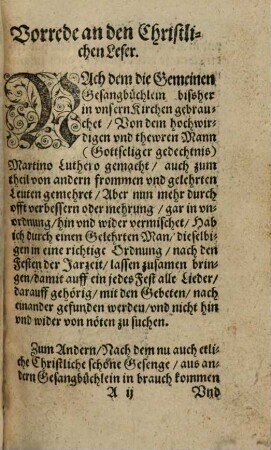 Vorrede an den Christli-
chen Leser.
NAch dem die Gemeinen
Gesangbüchlein bissher
in vnsern Kirchen gebrau-
chet / Von dem hochwir-
digen vnd thewren Mann
(Gottseliger gedechtnis)
Martino Luthero gemacht / auch zum
theil von andern frommen vnd gelehrten
Leuten gemehret / Aber nun mehr durch
offt verbessern oder mehrung / gar in vn-
ordnung / hin vnd wider vermischet / Hab
ich durch einen Gelehrten Man / dieselbi-
gen in eine richtige Ordnung / nach den
Festen der Jarzeit / lassen zusamen brin-
gen / damit auff ein jedes Fest alle Lieder /
darauff gehörig / mit den Gebeten / nach
einander gefunden werden / vnd nicht hin
vnd wider von nöten zu suchen.
Zum Andern / Nach dem nu auch etli-
che Christliche schöne Gesenge / aus an-
dern Gesangbüchlein in brauch kommen
A ij Vnd